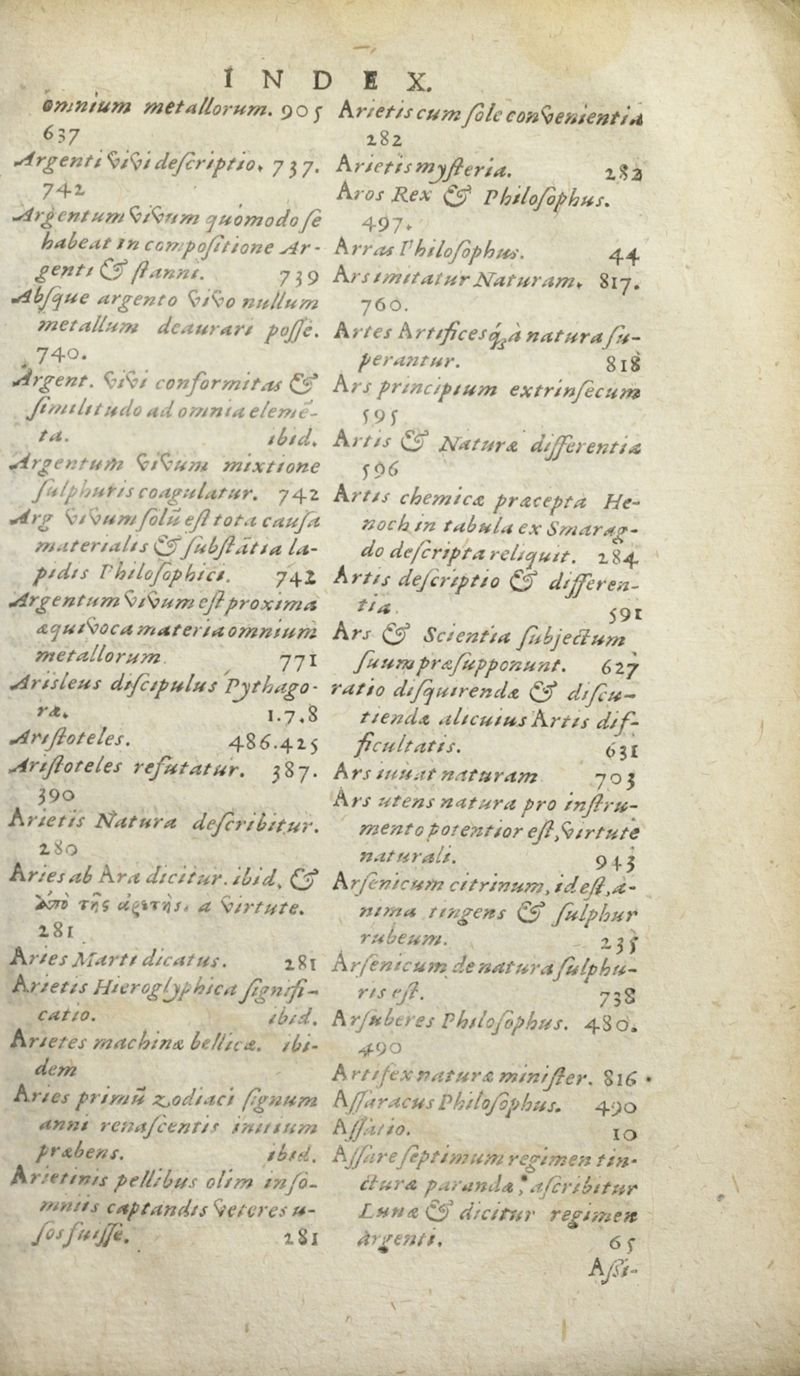 INDEX.
omnium metallorum. 905
637
Argenti vivi deſcriptio. 737.
742
Argentum vivum quomodo ſe
habeat in compoſitione Ar-
genti & ſtanni. 739
Abſque argento vivo nullum
metallum deaurari poſſe.
740.
Argent. vivi conformitas &
ſimilitudo ad omnia elemē-
ta. ibid.
Argentum vivum mixtione
ſulphuris coagulatur. 742
Arg vivum ſolū eſt tota cauſa
materialis & ſubſtātia la-
pidis Philoſophici. 742
Argentum vivum eſt proxima
æquivoca materia omnium
metallorum. 771
Arisleus diſcipulus Pythago-
ræ. 1.7.8
Ariſtoteles. 486.425
Ariſtoteles refutatur. 387.
390
Arietis Natura deſcribitur.
280
Aries ab Ara dicitur. ibid, &
ἀπὸ τῆς ἀρετῆς. a virtute.
281
Aries Marti dicatus. 281
Arietis Hieroglyphica ſignifi-
catio. ibid.
Arietes machinæ bellicæ. ibi-
dem
Aries primū zodiaci ſignum
anni renaſcentis initium
præbens. ibid.
Arietinis pellibus olim inſo-
mniis captandis veteres u-
ſos fuiſſe. 281
Arietis cum ſole convenientia
282
Arietis myſteria. 282
Aros Rex & Philoſophus.
497.
Arras Philoſophus. 44
Ars imitatur Naturam. 817.
760.
Artes Artificesq; à natura ſu-
perantur. 818
Ars principium extrinſecum
595
Artis & Naturæ differentia
596
Artis chemicæ præcepta He-
noch in tabula ex Smarag-
do deſcripta reliquit. 284
Artis deſcriptio & differen-
tia. 591
Ars & Scientia ſubjectum
ſuum præſupponunt. 627
ratio diſquirendæ & diſcu-
tiendæ alicuius Artis dif-
ficultatis. 631
Ars iuuat naturam 703
Ars utens natura pro inſtru-
mento potentior eſt, virtute
naturali. 943
Arſenicum citrinum, id eſt, a-
nima tingens & ſulphur
rubeum. 235
Arſenicum de natura ſulphu-
ris eſt. 738
Arſuberes Philoſophus. 480.
490
Artifex naturæ miniſter. 816
Aſſaracus Philoſophus. 490
Aſſatio. 10
Aſſare ſeptimum regimen tin-
cturæ parandæ, aſcribitur
Lunæ & dicitur regimen
argenti. 65
Aſſi-